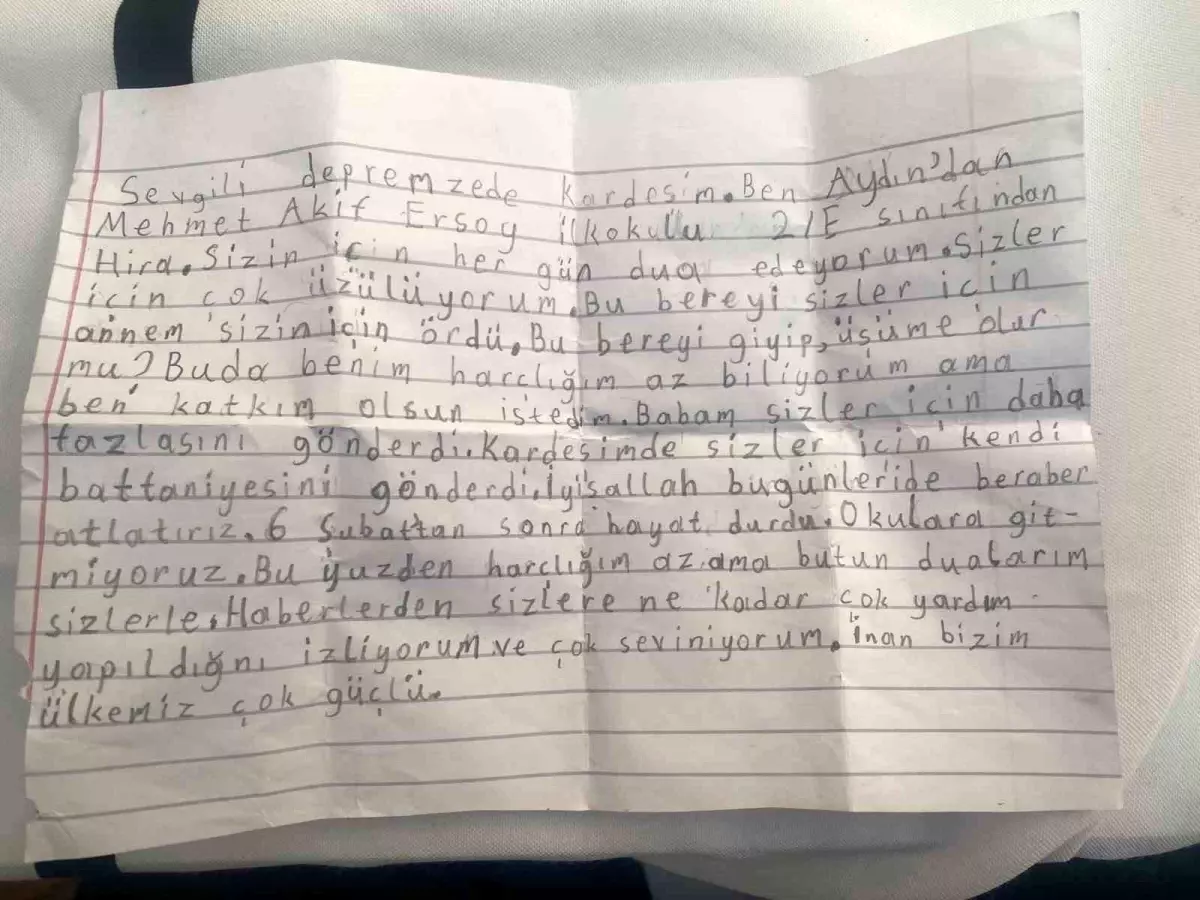 Sevgili depremzede kardesim. Ben Aydın'dan
Mehmet Akif Ersoy ilkokulu 2/E sınıfından
Hira. Sizin için her gün dua edeyorum. Sizler
için çok üzülüyorum. Bu bereyi sizler icin
annem sizin için ördü. Bu bereyi giyip, üsüme olur
mu? Buda benim harclığım az biliyorum ama
ben katkım olsun istedim. Babam sizler icin daha
fazlasını gönderdi. Kardesimde sizler icin kendi
battaniyesini gönderdi. İyisallah bugünleride beraber
atlatırız. 6 Subattan sonra hayat durdu. Okulara git-
miyoruz. Bu yuzden harclığım az ama butun dualarım
sizlerle. Haberlerden sizlere ne kadar cok yardım
yapıldığnı izliyorum ve çok seviniyorum. İnan bizim
ülkemiz çok güçlü.